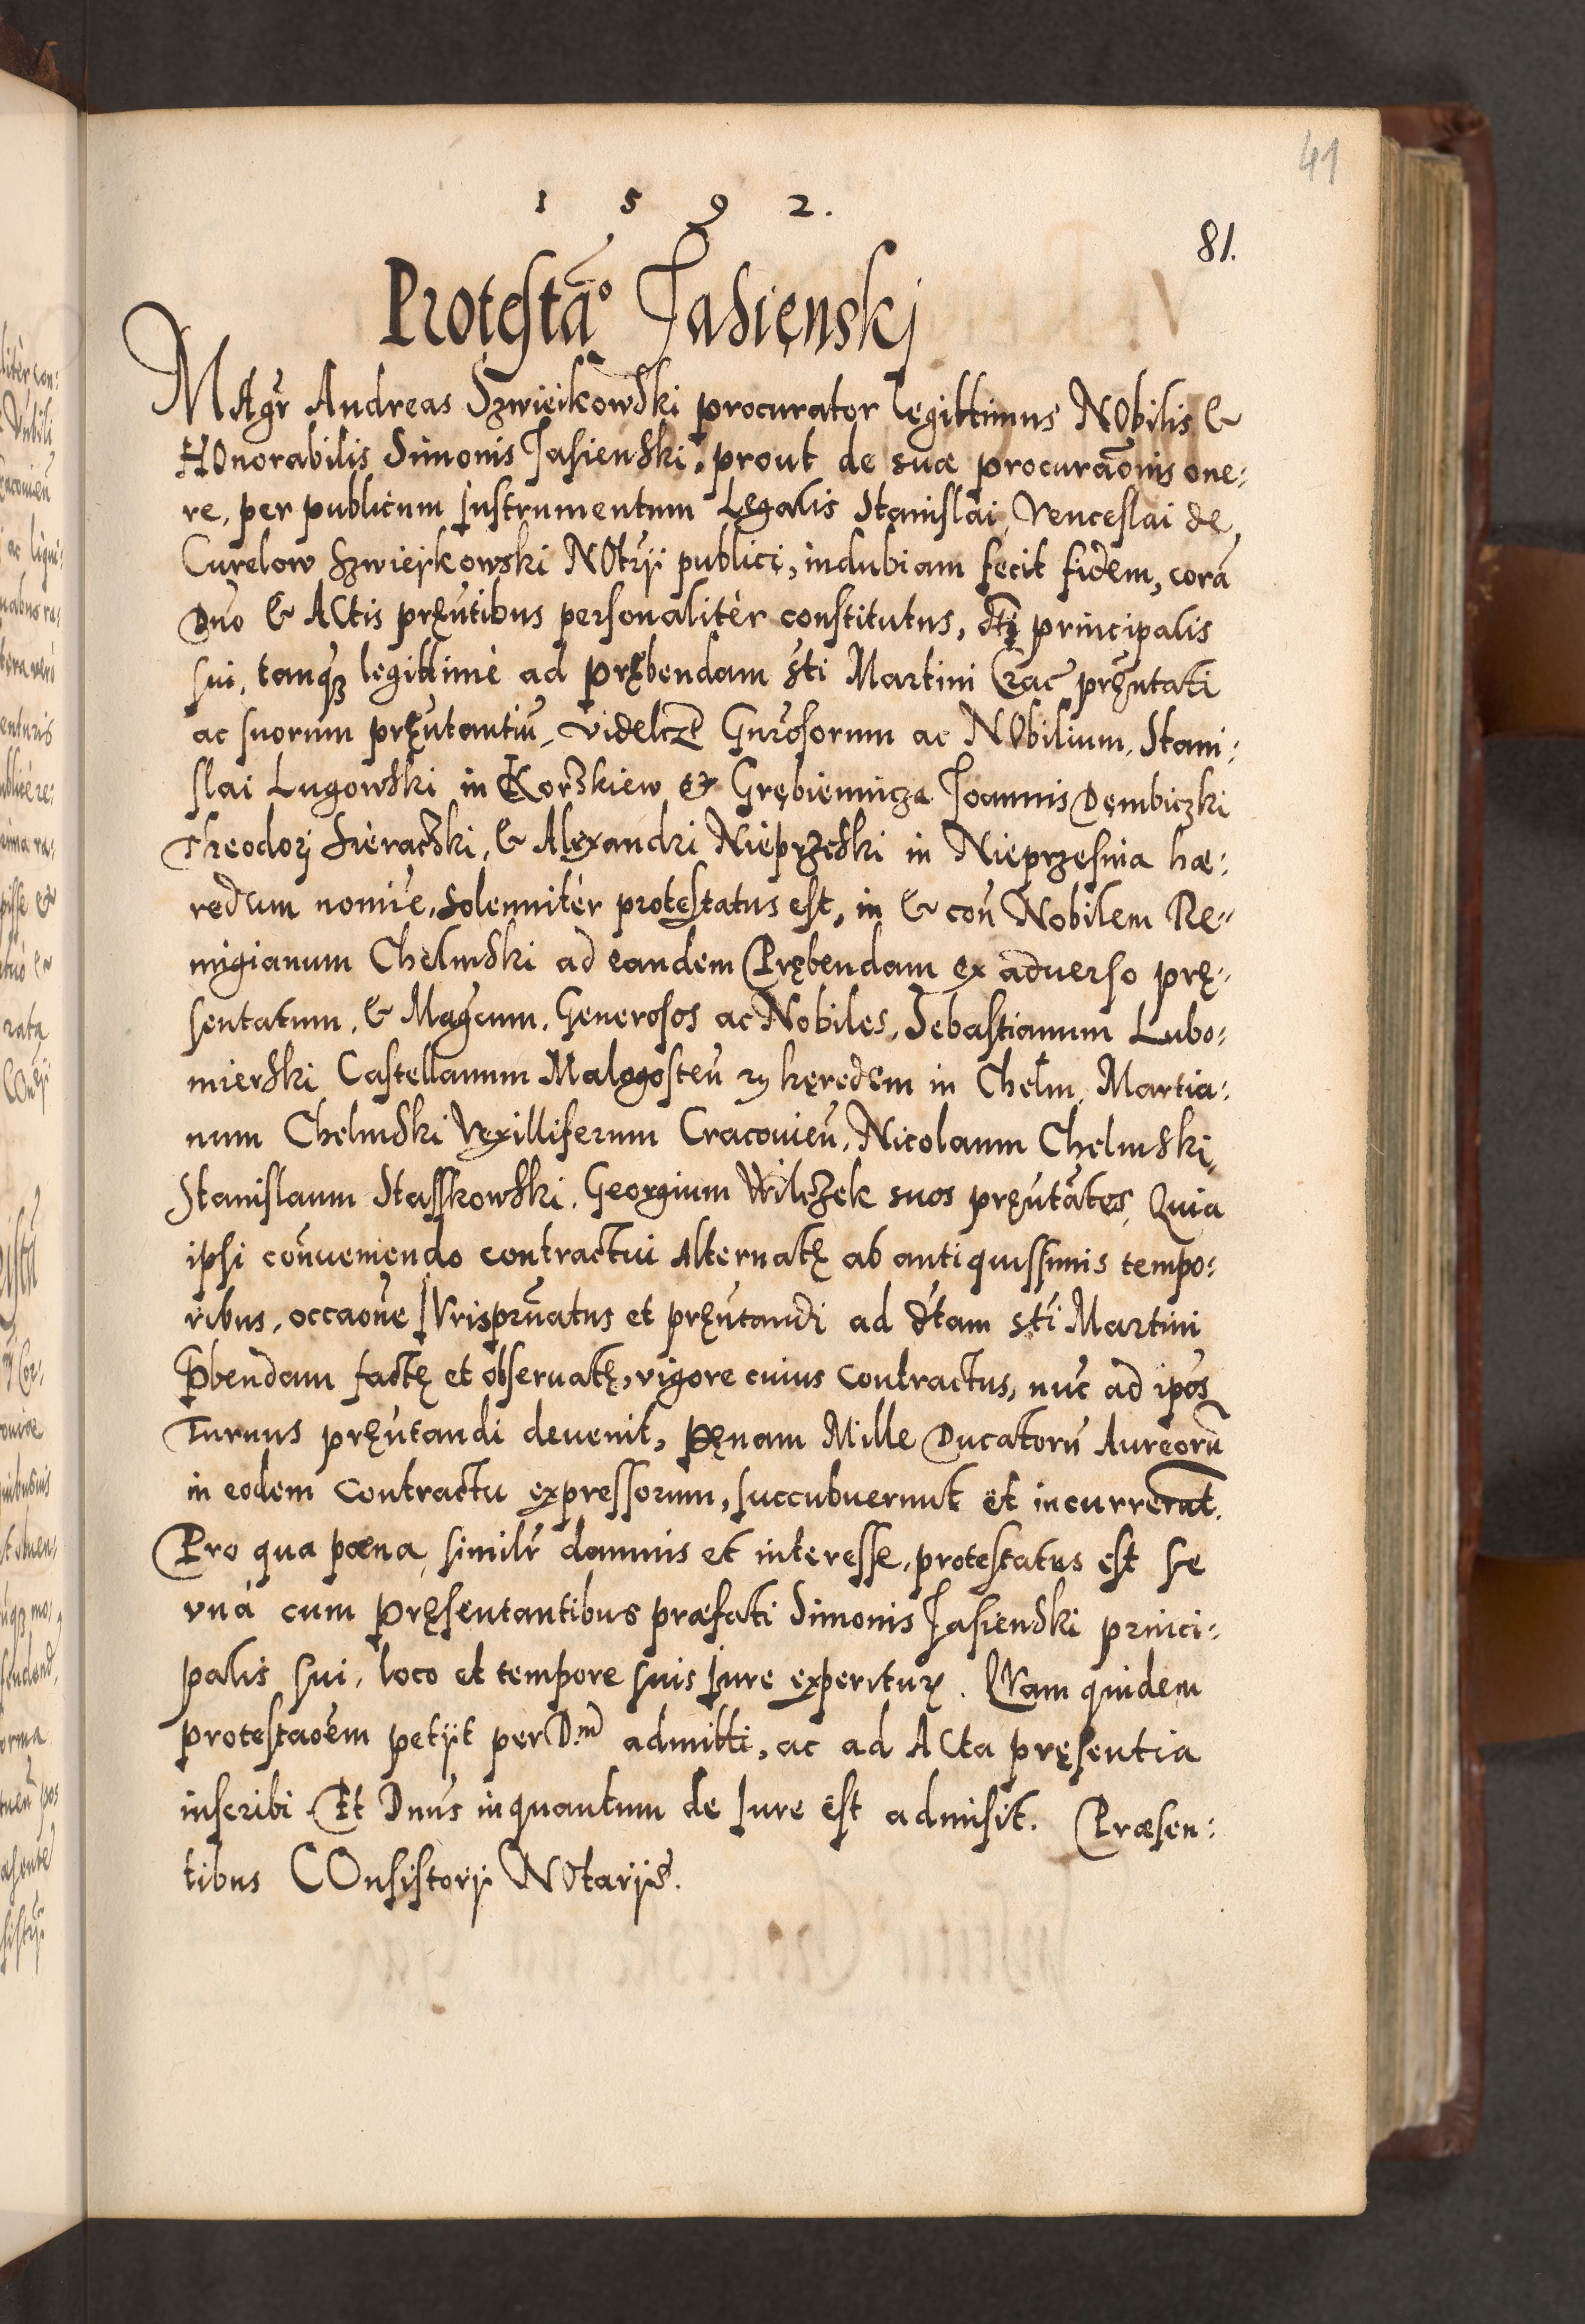 41
1 5 9 2.
81.
Protestaō Jasięnskj
MAgr̄ Andreas Szwieikowski procurator legittimus NObilis &
HOnorabilis Simonis Jasienski, prout de suæ procuraōnis one:
re, per publicum Instrumentum Legalis Stanislai Venceslai de
Curelow Szwieykowski NOtrÿ publici, indubiam fecit fidem, corā
Dno & ACtis pręntibus personalitèr constitutus, dti principalis
sui, tanqȝ legittimè ad prębendam Sti Martini Crac pręntati
ac suorum pręntantiū, videlcȝ Gnrosorum ac NObilium, Stani:
slai Lugowski in Korzkiew et Grębiennicza Joannis Dembiczki
Theodorj Sieracski, & Alexandri Nieprzeski in Nieprzesnia hæ:
redum nomīe, solennitèr protestatus est, in & con Nobilem Re:
migianum Chelmski ad eandem Prębendam ex aduerso prę:
sentatum, & Magcum, Generosos ac Nobiles, Sebastianum Lubo:
mierski Castellanum Malogosten̄ ẏ hęredem in Chelm, Martia:
num Chelmski Vexilliferum Cracouien̄, Nicolaum Chelmski,
Stanislaum Stasskowski, Georgium Wilczek suos pręntātes, Quia
ipsi conueniendo contractui alternatę ab antiquissimis tempo:
ribus, occaōne IVrisprnatus et pręntandi ad dtam sti Martini
Pbendam factę et obseruatę, vigore cuius contractus, nūc ad ipos
Turnus pręntandi deuenit, pęnam Mille Ducatorū Aureorū
in eodem contractu expressorum, succubuerunt et incurrerāt.
Pro qua pœna, similr̄ damnis et interesse, protestatus est se
vnà cum pręsentantibus præfati Simonis Jasienski princi:
palis sui, loco et tempore suis Iure experituȝ. QVam quidem
protestaōem petÿt per D.m admitti, ac ad ACta pręsentia
inscribi Et Dnus inquantum de Iure est admisit. Præsen:
tibus COnsistorÿ NOtarÿs.